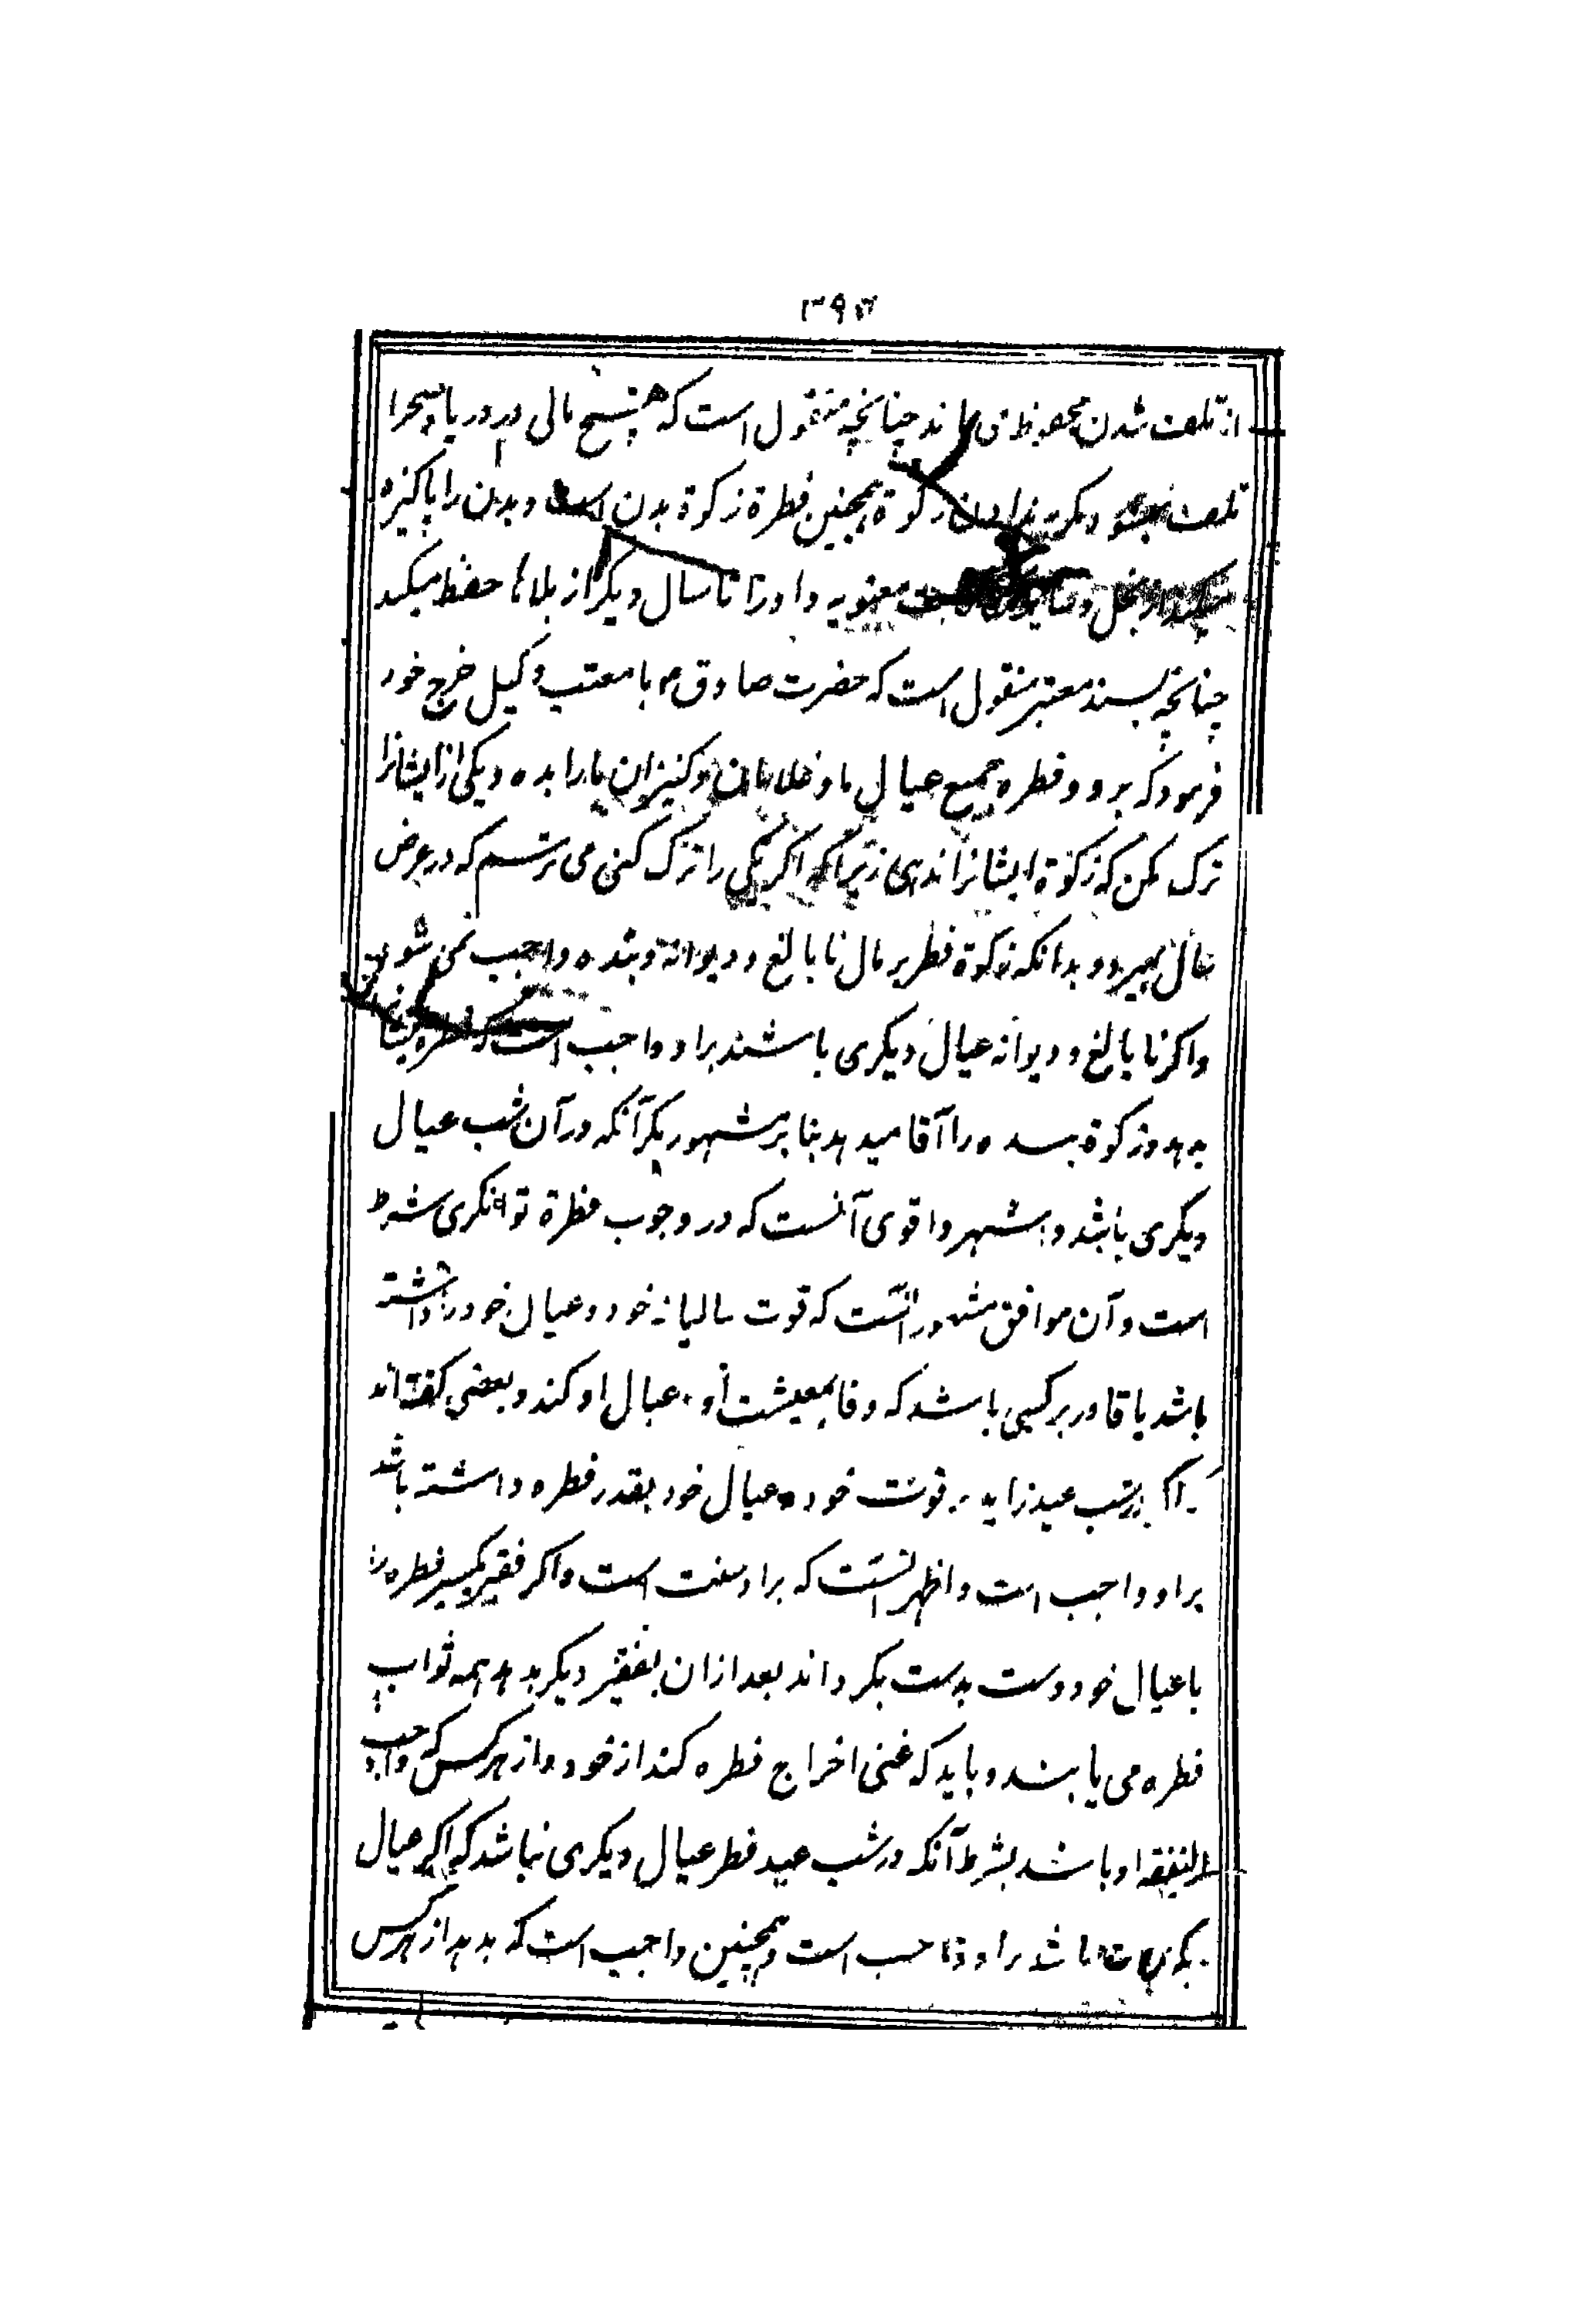 از تلف شدن محفوظ می ماند چنانچه منقول است که هیچ مالی در دریا و صحرا
تلف نمیشود مکر بندادن زکوة و همچنین فطرة زکوة بدن است و بدن را پاکیزه
میکند از بخل و معنویه و او را تا سال دیکر از بلاها حفظ میکند
چنانچه بسند معتبر منقول است که حضرت صادق ع با معتب وکیل خرج خود
فرمود که برو و فطره جمیع عیال ما و غلامان و کنیزان ما را بده و یکی از ایشانرا
ترک مکن که زکوة ایشانرا ندهی زیرا که اکر یکی را ترک کنی می ترسم که در عرض
سال بمیرد و بدانکه زکوة فطر بر مال نابالغ و دیوانه و بنده واجب نمی شود
و اکر نابالغ و دیوانه عیال دیکری باشند بر او واجب است که فطره ایشانرا
بدهد و زکوة بنده را آقا میدهد بنا بر مشهور مکر آنکه در آن شب عیال
دیکری باشد و اشهر و اقوی آنست که در وجوب فطرة توانکری شرط
است و آن موافق مشهور آنست که قوت سالیانه خود و عیال خود را داشته
باشد یا قادر بر کسبی باشد که وفا بمعیشت او و عیال او کند و بعضی کفته‌اند
اکر در شب عید زاید بر قوت خود و عیال خود بقدر فطره داشته باشد
بر او واجب است و اظهر آنست که بر او سنت است و اکر فقیر یکسر فطره را
با عیال خود دست بدست بکرداند بعد ازان بفقیر دیکر بدهد همه ثواب
فطره می یابند و باید که غنی اخراج فطره کند از خود و از هر کس که واجب
النفقه او باشد بشرط آنکه در شب عید فطر عیال دیکری نباشد که اکر عیال
باشد بر او واجب است و همچنین واجب است که بدهد از هر کس